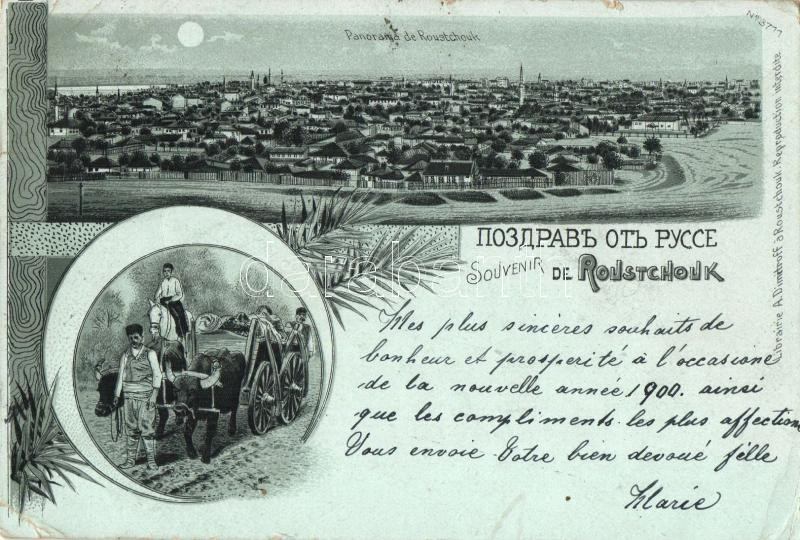 Panorama de Roustchouk
№ 3777
ПОЗДРАВЪ ОТЪ РУССЕ
SOUVENIR DE ROUSTCHOUK
Librairie A. Dimitroff à Roustchouk. Reproduction interdite
Mes plus sincères souhaits de
bonheur et prosperité à l'occasione
de la nouvelle année 1900. ainsi
que les compliments les plus affection
Vous envoie Votre bien devoué fille
Marie
darabanth.com